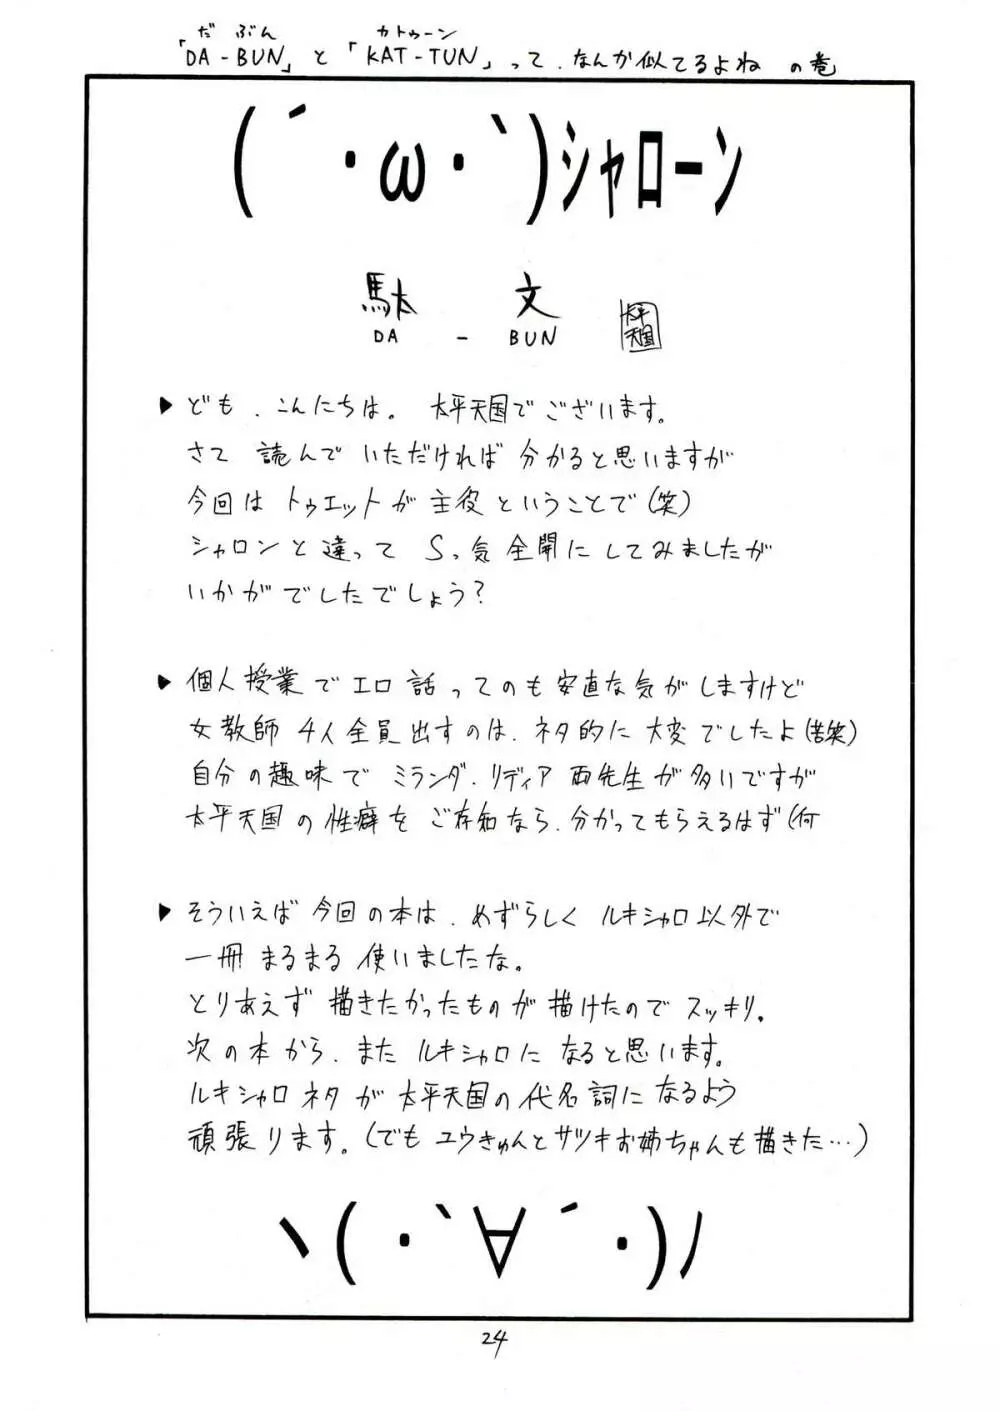 だぶん カトゥーン
「DA-BUN」と「KAT-TUN」って、なんか似てるよね の巻
(´・ω・`)シャローン
駄文
DA - BUN
太平天国
▶ども、こんにちは。太平天国でございます。
さて 読んでいただければ分かると思いますが
今回はトゥエットが主役ということで(笑)
シャロンと違ってSっ気全開にしてみましたが
いかがでしたでしょう?
▶個人授業でエロ話ってのも安直な気がしますけど
女教師4人全員出すのは、ネタ的に大変でしたよ(苦笑)
自分の趣味でミランダ、リディア両先生が多いですが
太平天国の性癖をご存知なら、分かってもらえるはず(何
▶そういえば今回の本は、めずらしくルキシャロ以外で
一冊まるまる使いましたな。
とりあえず描きたかったものが描けたのでスッキリ。
次の本から、またルキシャロになると思います。
ルキシャロネタが太平天国の代名詞になるよう
頑張ります。(でもユウきゅんとサツキお姉ちゃんも描きた…)
ヽ(・`∀´・)ノ
24